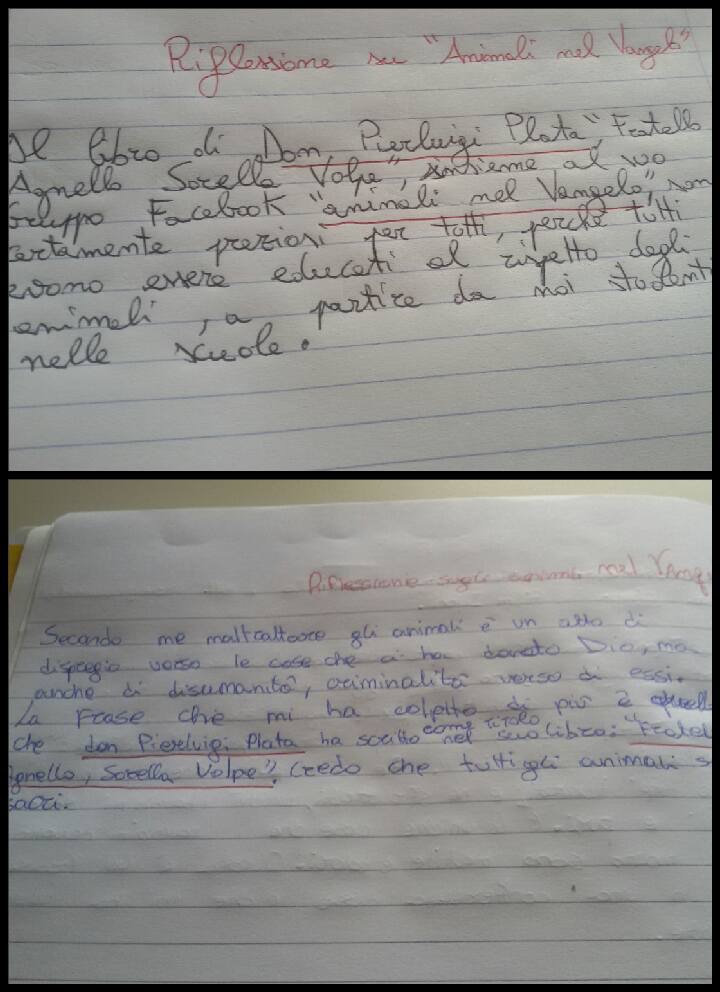 Riflessione su "Animali nel Vangelo"
Il libro di Don Pierluigi Plata "Fratello
Agnello Sorella Volpe", insieme al uo
Gruppo Facebook "animali nel Vangelo", son
certamente preziosi per tutti, perché tutti
evono essere educati al rispetto degli
animali, a partire da noi studenti
nelle scuole.
Riflessione sugli animali nel Vang
Secondo me maltrattare gli animali è un atto di
dispregio verso le cose che ci ha donato Dio, ma
anche di disumanità, criminalità verso di essi.
La frase che mi ha colpito di più è quell
che don Pierluigi Plata ha scritto come titolo nel suo libro: "Fratel
gnello, Sorella Volpe". Credo che tutti gli animali s
sacri.